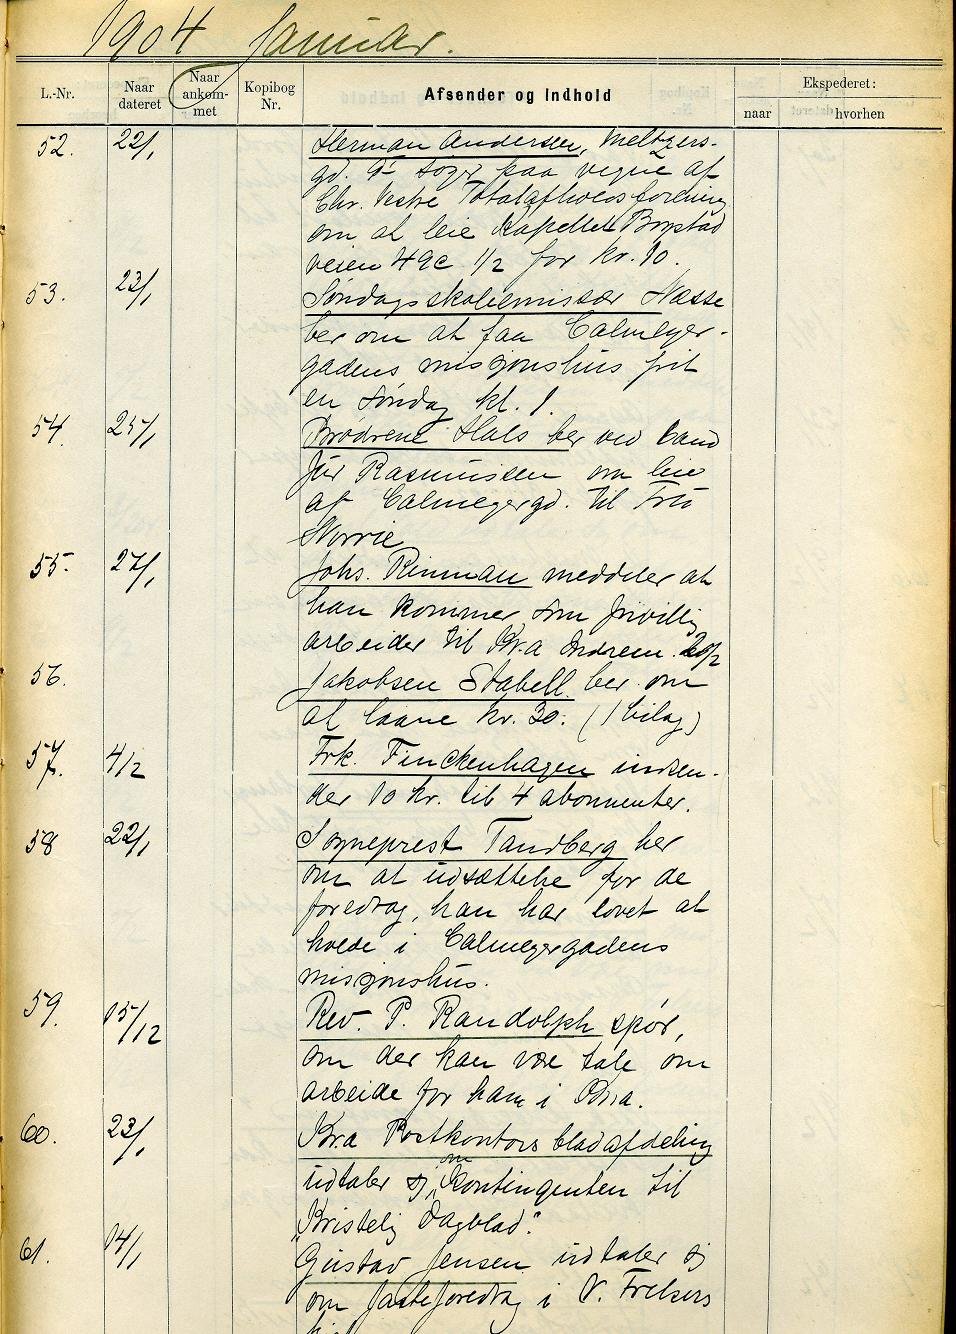 1904 Januar.
L.-Nr. Naar dateret Naar ankom-met Kopibog Nr. Afsender og Indhold Ekspederet: naar hvorhen
52. 22/1 Herman Andersen, Meltzers-
gd. 9 søger paa vegne af
Chr. Vestre Totalafholdsforening
om at leie Kapellet
veien 49c 1/2 for kr. 10.
53. 23/1 Søndagsskoleemissær Næsse
ber om at faa Calmeyer-
gadens misjonshus frit
en søndag kl. 1.
54. 25/1 Brødrene Hals ber ved cand
jur Rasmussen om leie
af Calmeyergd. til Fru
Norrie
55. 27/1 Johs. Rinman meddeler at
han kommer som frivillig
arbeider til Kr.a Indrem. 20/2
56. Jakobsen Stabell ber om
at laane kr. 30. (1 bilag)
57. 4/2 Frk. Finckenhagen insen-
der 10 kr. til 4 abonnenter.
58 22/1 Sogneprest Tandberg ber
om at udsættelse for de
foredrag, han har lovet at
holde i Calmeyergadens
misjonshus.
59. 15/12 Rev. P. Randolph spør,
om der kan være tale om
arbeide for ham i
60. 23/1 Kr.a Postkontors bladafdeling
udtaler sig om Kontingenten til
"Kristelig Dagblad".
61. 14/1 Gustav Jensen udtaler sig
om fasteforedrag i V. Frelsers